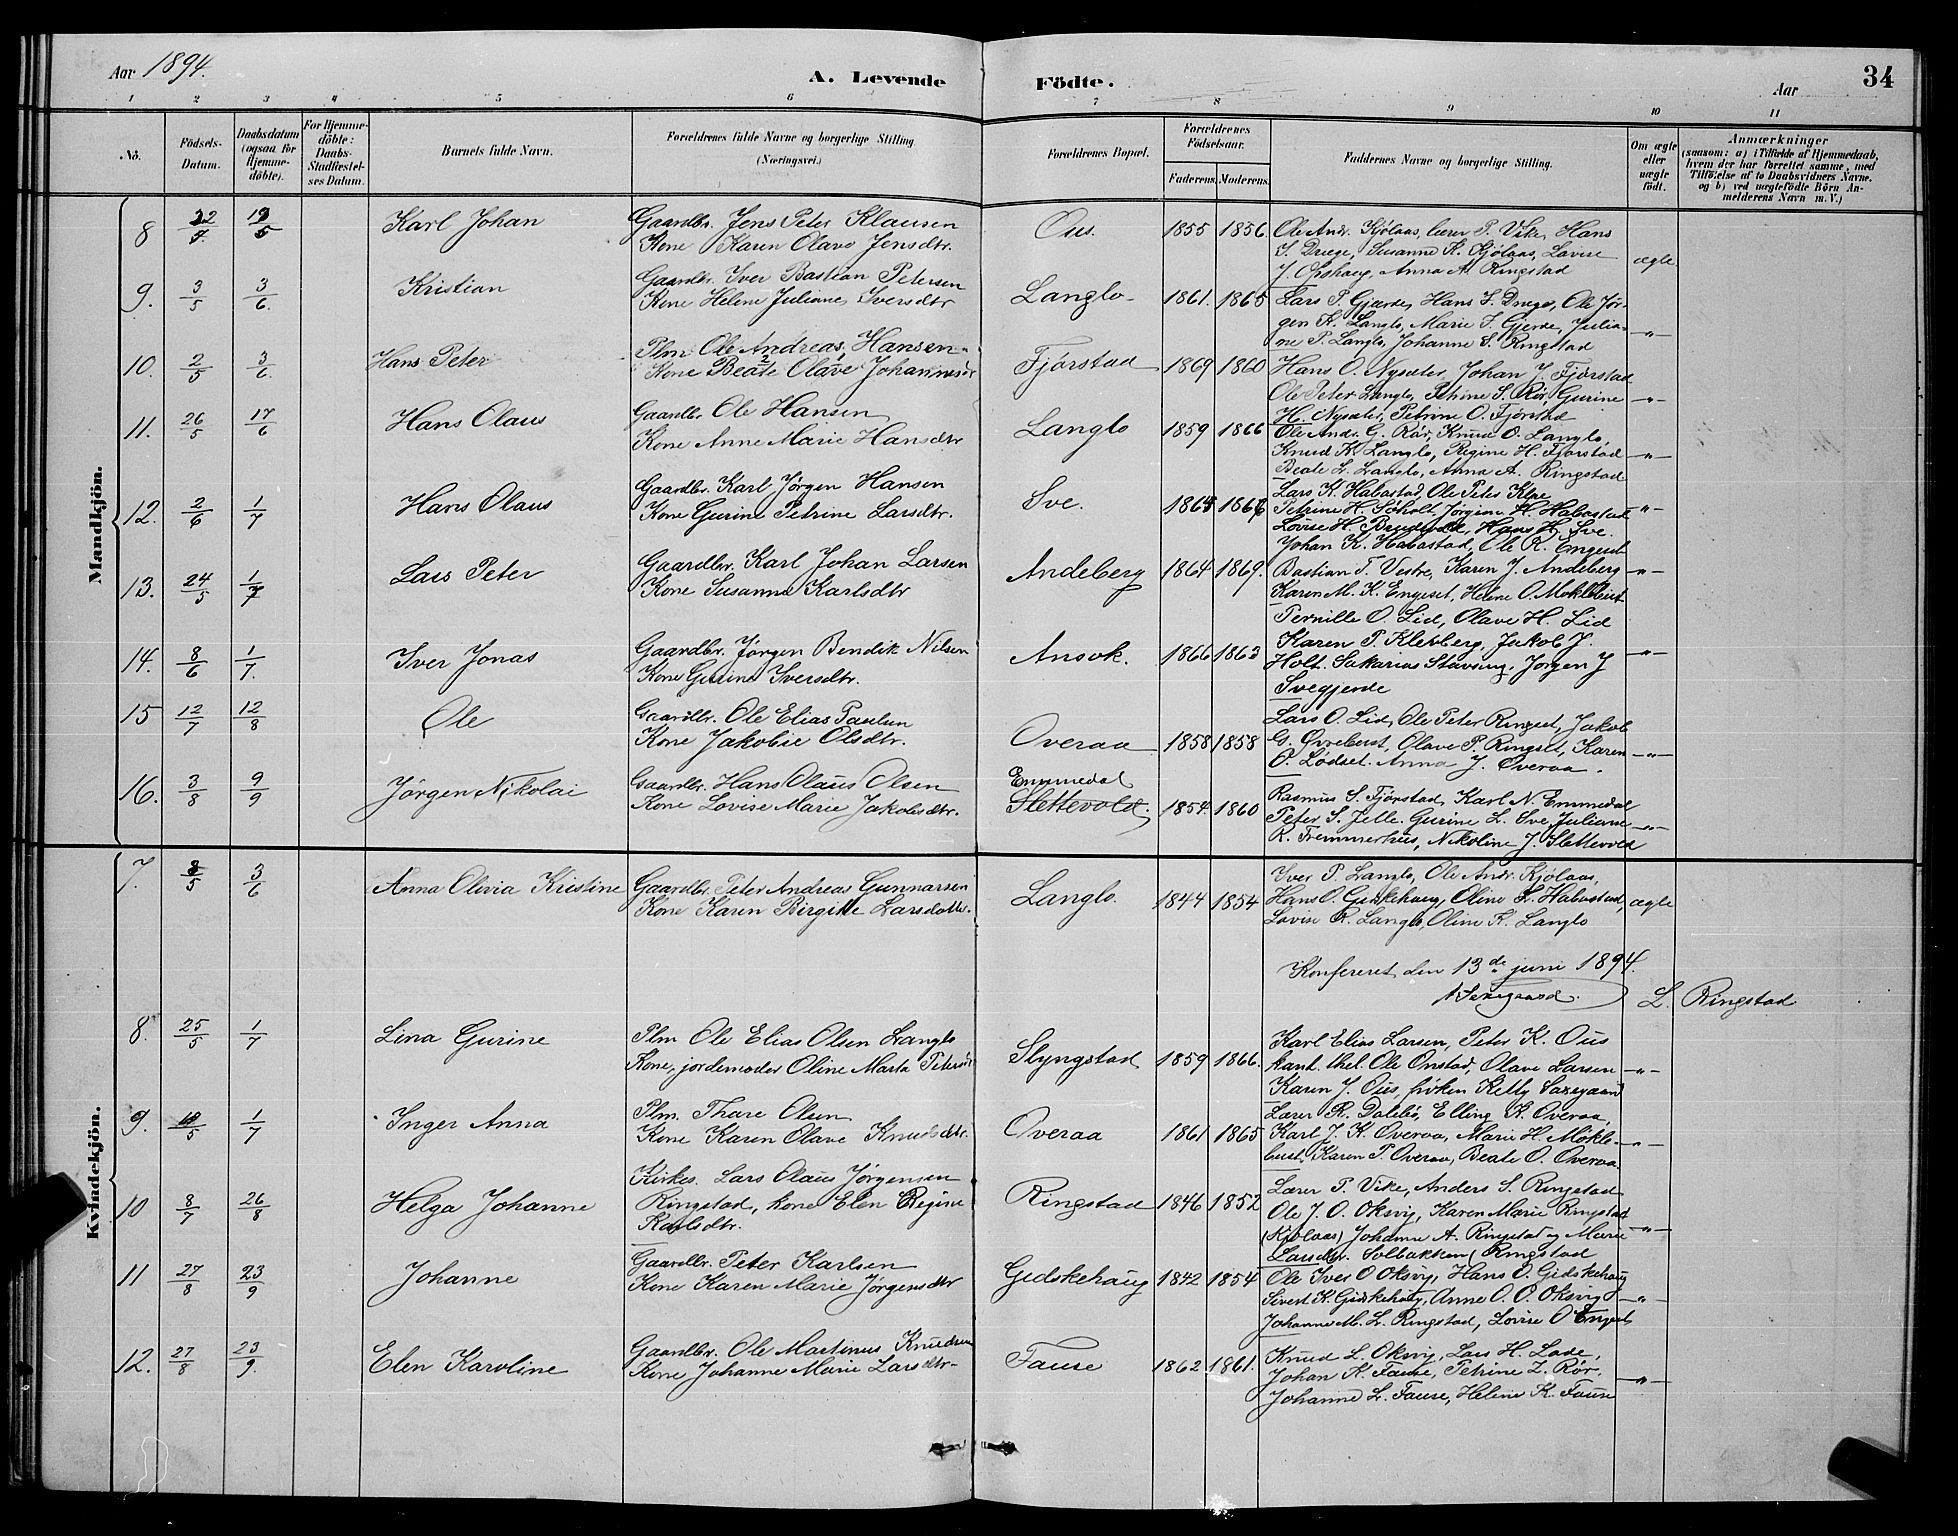 Aar 1894.
A. Levende
Födte.
Aar
34
1 2 3 4 5 6 7 8 9 10 11
No.
Födsels-
Datum.
Daabsdatum
(ogsaa for
Hjemme-
döbte).
For Hjemme-
döbte:
Daabs-
Stadfæstel-
ses Datum.
Barnets fulde Navn.
Forældrenes fulde Navne og borgerlige Stilling.
(Næringsvei.)
Forældrenes Bopæl.
Forældrenes
Födselsaar.
Faderens. Moderens.
Faddernes Navne og borgerlige Stilling.
Om ægte
eller
uægte
födt.
Anmærkninger
(saasom: a) i Tilfælde af Hjemmedaab,
hvem der har forrettet samme, med
Tilföielse af to Daabsvidners Navne.
og b) ved uægtefödte Börn An-
melderens Navn m. V.)
Mandkjön.
8 5 Karl Johan
Gaardbr. Jens Peter Klausen
Kone Karen Olave Jensdtr.
Ous. 1855 1856.
Ole Andr. Kjølaas, lærer P. Vike, Hans
S. Drege, Susanne K. Kjølaas, Lovise
J. Opshaug, Anna A. Ringstad
ægte
9. 3/5 3/6. Kristian
Gaardbr. Iver Bastian Petersen
Kone Helene Juliane Iversdtr
Langlo 1861. 1865
Lars P. Gjærde, Hans S. Drege, Ole Jør-
gen K. Langlo, Marie S. Gjerde, Julia-
ne P. Langlo, Johanne S. Ringstad
-"-
10. 2/5 3/6. Hans Peter
Plm Ole Andreas Hansen
Kone Beate Olave Johannesdtr
Fjørstad 1869 1860
Hans O. Nysæter, Johan J. Fjørstad
Ole Peter Langlo, Petrine S. Rør, Gurine
H. Nysæter, Petrine O. Fjørstad
-"-
11. 26/5 17/6 Hans Olaus
Gaardbr. Ole Hansen
Kone Anne Marie Hansdtr
Langlo 1859 1866
Ole Andr. G. Rør, Knud O. Langlo,
Knud K. Langlo, Regine H. Fjorstad
Beate L. Langlo, Anna A. Ringstad
-"-
12. 2/6 1/7 Hans Olaus
Gaardbr. Karl Jørgen Hansen
Kone Gurine Petrine Larsdtr.
Sve.
Lars K. Habostad, Ole Peter Klee
Petrine H. Søholt, Jørgine H. Habostad
Lovise H. Hans H. Sve.
-"-
13. 24/5 1/7 Lars Peter
Gaardbr. Karl Johan Larsen
Kone Susanne Karlsdtr
Andeberg 1864 1869.
Johan K. Habostad, Ole R. Engeset
Bastian T. Vestre, Karen J. Andeberg
Karen M. K. Engeset, Helene O. Moklebust
-"-
14. 8/6 1/7. Iver Jonas
Gaardbr. Jørgen Bendik Nilsen
Kone Gurine Iversdtr.
Ansok. 1866 1863
Pernille O. Lid, Olave H. Lid
Karen P. Klevberg, Jakob J.
Holt. Sakarias Stavseng, Jorgen J
Svegjerde
-"-
15 12/7 12/8 Ole
Gaardbr. Ole Elias Paulsen
Kone Jakobie Olsdtr.
Overaa 1858 1858
Lars O. Lid, Ole Peter Ringset, Jakob
G. Øvrebust, Olave P. Ringset, Karen
O. Lødset. Anna J. Overaa.
-"-
16. 3/8 9/9 Jørgen Nikolai
Gaardbr. Hans Olaus Olsen
Kone Lovise Marie Jakobsdtr.
Emmedal
Slettevold. 1854. 1860
Rasmus S. Fjørstad, Karl N. Emmedal
Peter S. Jelle. Gurine L. Sve, Juliane
R. Fremmerhus, Nikoline J. Slettevold
-"-
Kvindekjön.
7. 3/6 Anna Olivia Kristine
Gaardbr. Peter Andreas Gunnarsen
Kone Karen Birgitte Larsdatter.
Langlo. 1844 1854
Iver P. Langlo, Ole Andr. Kjolaas,
Hans O. Gidskehaug, Oline L. Habostad,
Lovise R. Langlo, Oline K. Langlo
ægte
Konfereret den 13de juni 1894.
L. Ringstad
8. 25/5 1/7 Lina Gurine
Plm Ole Elias Olsen Langlo
Kone, jordemoder Oline Marta Petersdtr
Slyngstad 1859 1866.
Karl Elias Larsen, Peter K. Ous
kand. thel. Ole Onstad, Olave Larsen
Karen J. Ous, frøken Ketty Saxegaard
-"-
9. 1/7 Inger Anna
Plm. Thare Olsen
Kone Karen Olave Knudsdtr.
Overaa 1861 1865
Lærer R. Dalebø, Elling K. Overaa,
Karl J. K. Overaa, Marie H. Møkle-
bust, Karen P. Overaa, Beate O. Overaa.
-"-
10 8/7 26/8 Helga Johanne
Kirkes. Lars Olaus Jørgensen
Ringstad, kone Elen Regine
Karlsdtr.
Ringstad 1846 1852
Lærer P. Vike, Anders S. Ringstad
Ole J. O. Oksvig, Karen Marie Ringstad
(Kjølaas) Johanne A. Ringstad og Marie
Larsdtr. Solbakken (Ringstad
-"-
11 27/8 23/9 Johanne
Gaardbr. Peter Karlsen
Kone Karen Marie Jørgensdtr
Gidskehaug 1842 1854
Ole Iver O Oksvig, Hans O. Gidskehaug
Sivert K. Gidskehaug, Anne O. O. Oksvig
Johanne M. L. Ringstad, Lovise O Engeset
-"-
12. 27/8 23/9 Elen Karoline
Gaardbr. Ole Martinus Knudsen
Kone Johanne Marie Larsdtr
Fause 1862 1861.
Knud L. Oksvig, Lars H. Lade,
Johan K. Fause, Petrine L. Rør.
Johanne L. Fause, Heline K. Fause
-"-